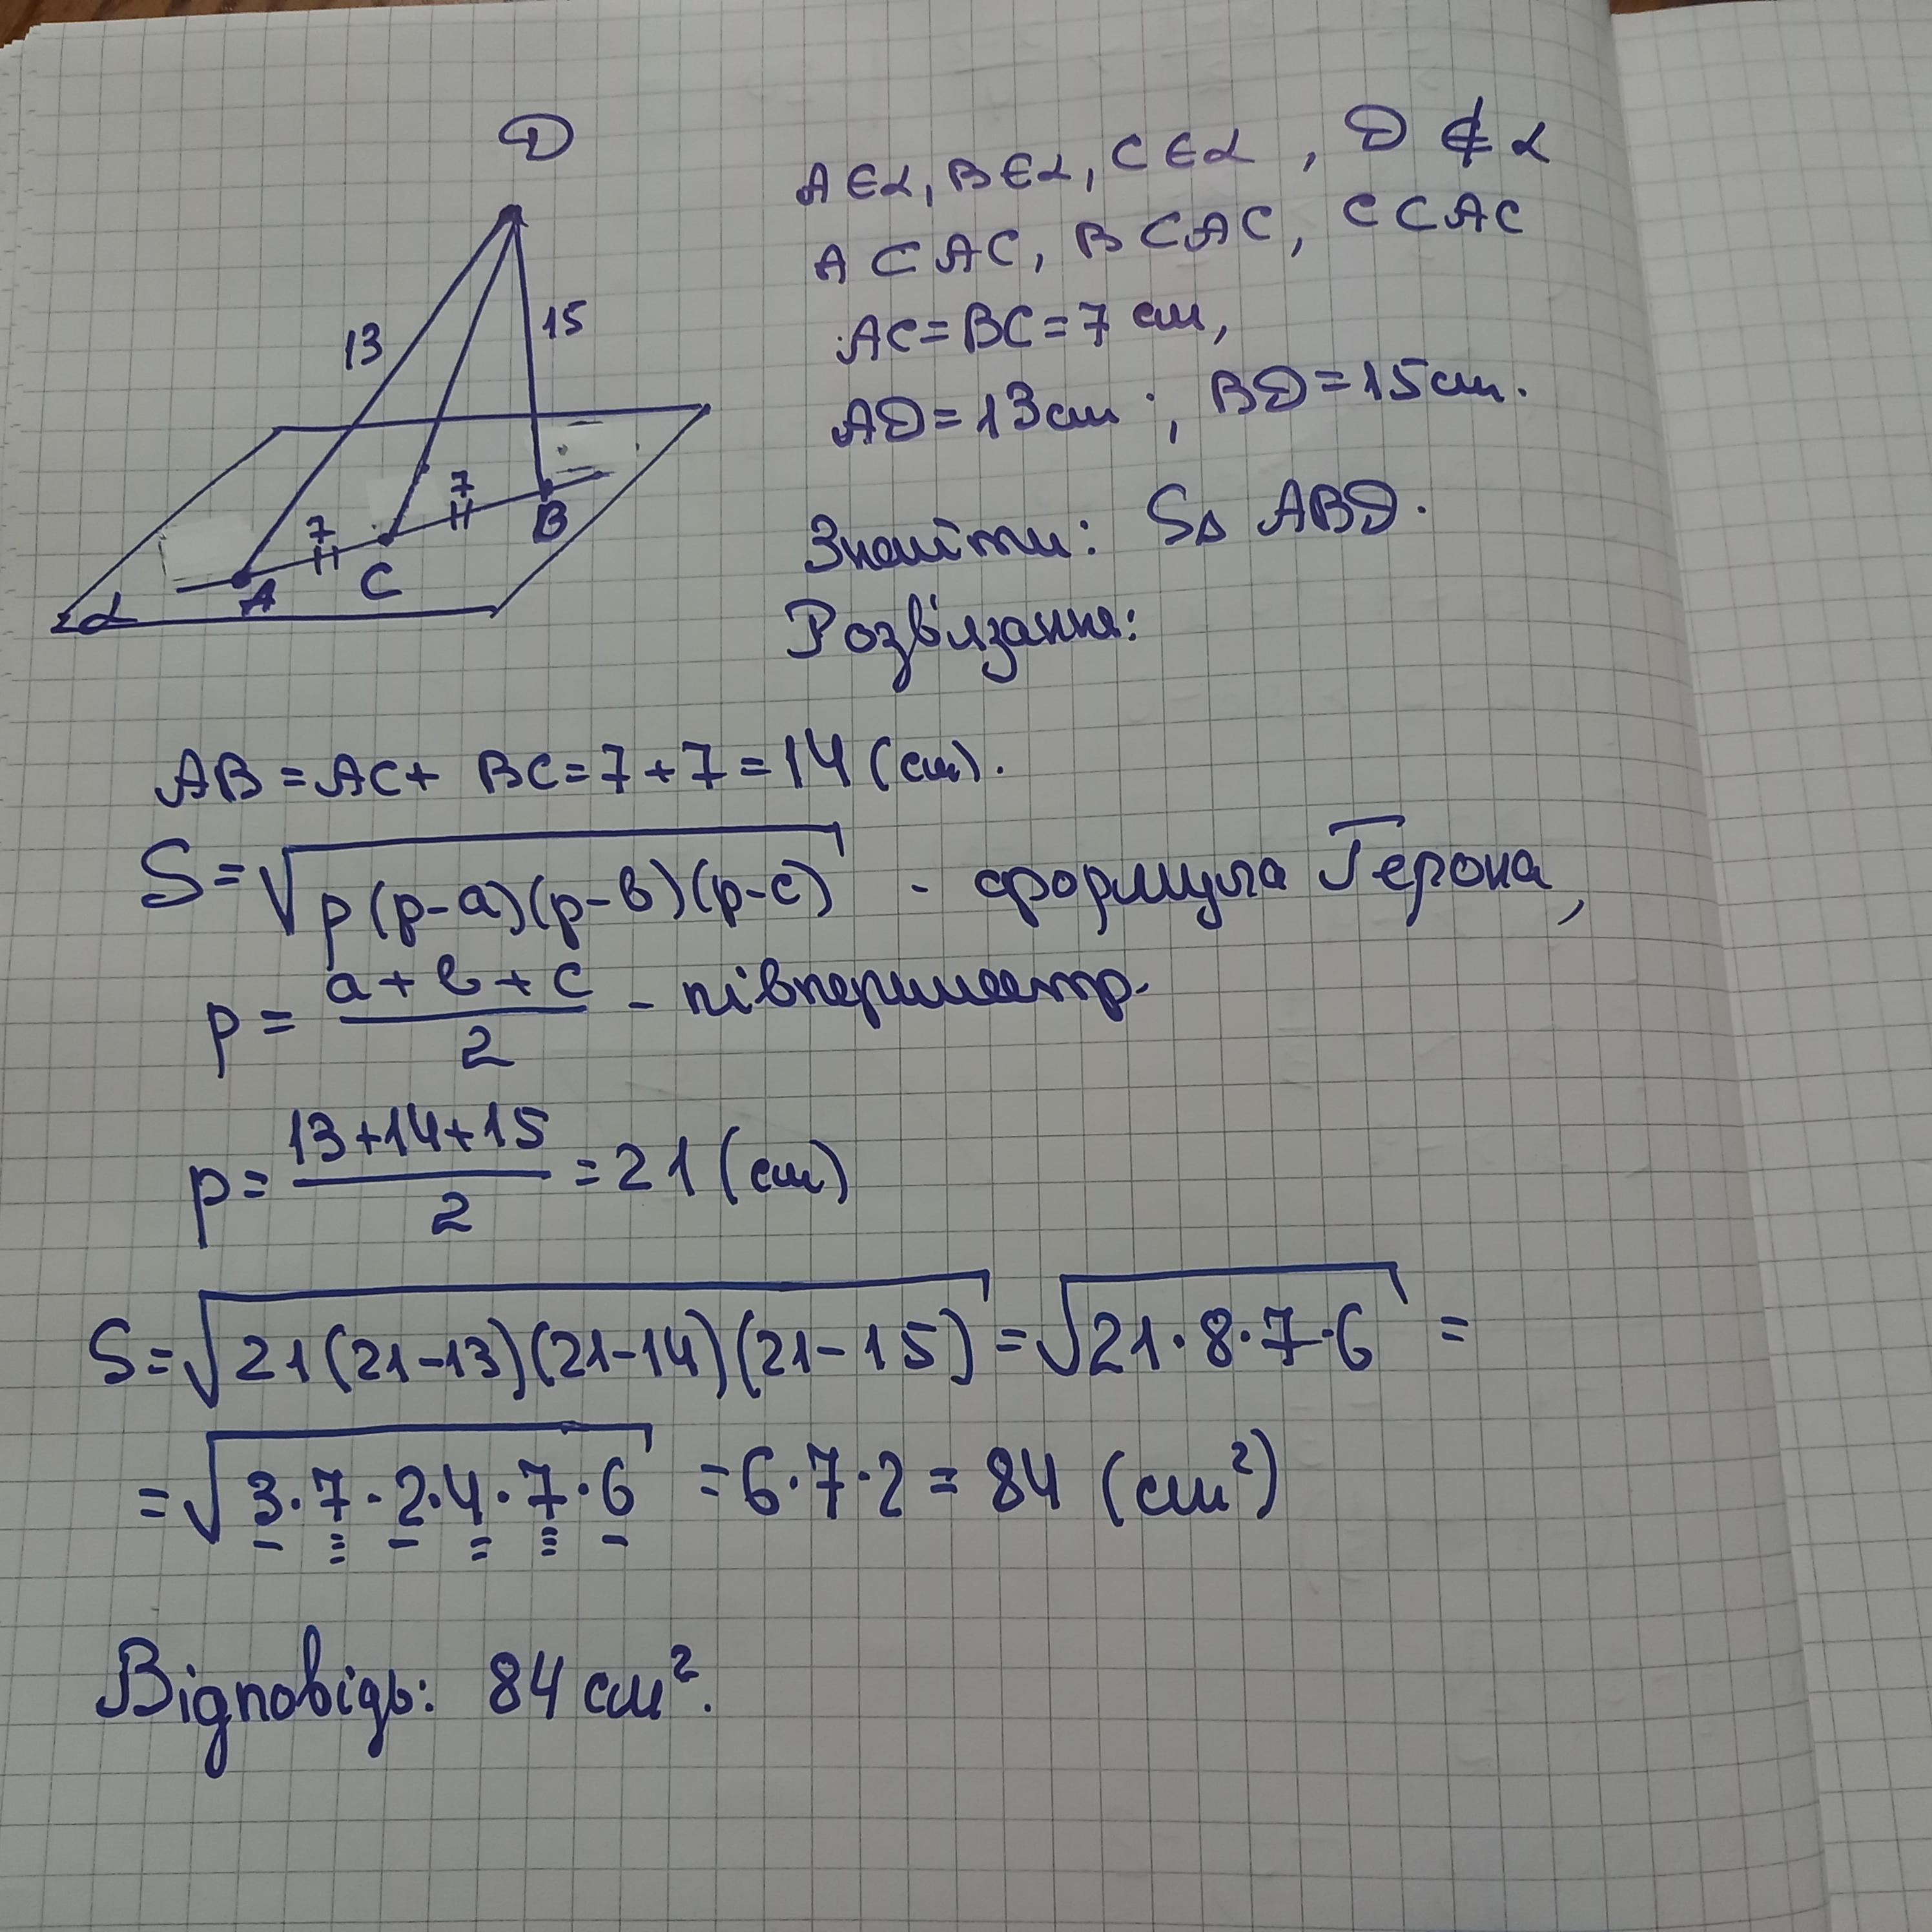 D
13
15
7
7
A
C
B
α
A ∈ α, B ∈ α, C ∈ α, D ∉ α
A ⊂ AC, B ⊂ AC, C ⊂ AC
AC = BC = 7 см,
AD = 13 см; BD = 15 см.
Знайти: S△ ABD.
Розв'язання:
AB = AC + BC = 7 + 7 = 14 (см).
S = √(p(p-a)(p-b)(p-c)) - формула Герона,
p = (a + b + c)/2 - півпериметр.
p = (13+14+15)/2 = 21 (см)
S = √(21(21-13)(21-14)(21-15)) = √(21·8·7·6) =
= √(3·7·2·4·7·6) = 6·7·2 = 84 (см²)
Відповідь: 84 см².